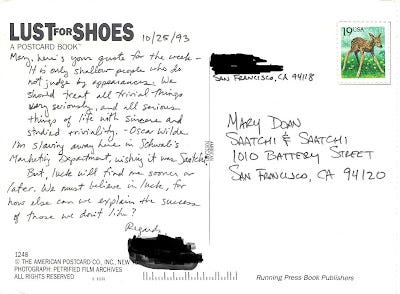 LUST FOR SHOES
A POSTCARD BOOK™
10/25/93
Mary, here's your quote for the week –
It is only shallow people who do
not judge by appearances. We
should treat all trivial things
very seriously, and all serious
things of life with sincere and
studied triviality. - Oscar Wilde
I'm slaving away here in Schwab's
Marketing Department, wishing it was Saatchi.
But, luck will find me sooner or
later. We must believe in luck, for
how else can we explain the success
of those we don't like?
Regards
1248
© THE AMERICAN POSTCARD CO., INC., NEW
PHOTOGRAPH: PETRIFIED FILM ARCHIVES
ALL RIGHTS RESERVED
SAN FRANCISCO, CA 94118
19 USA
MARY DOAN
SAATCHI & SAATCHI
1010 BATTERY STREET
SAN FRANCISCO, CA 94120
Running Press Book Publishers